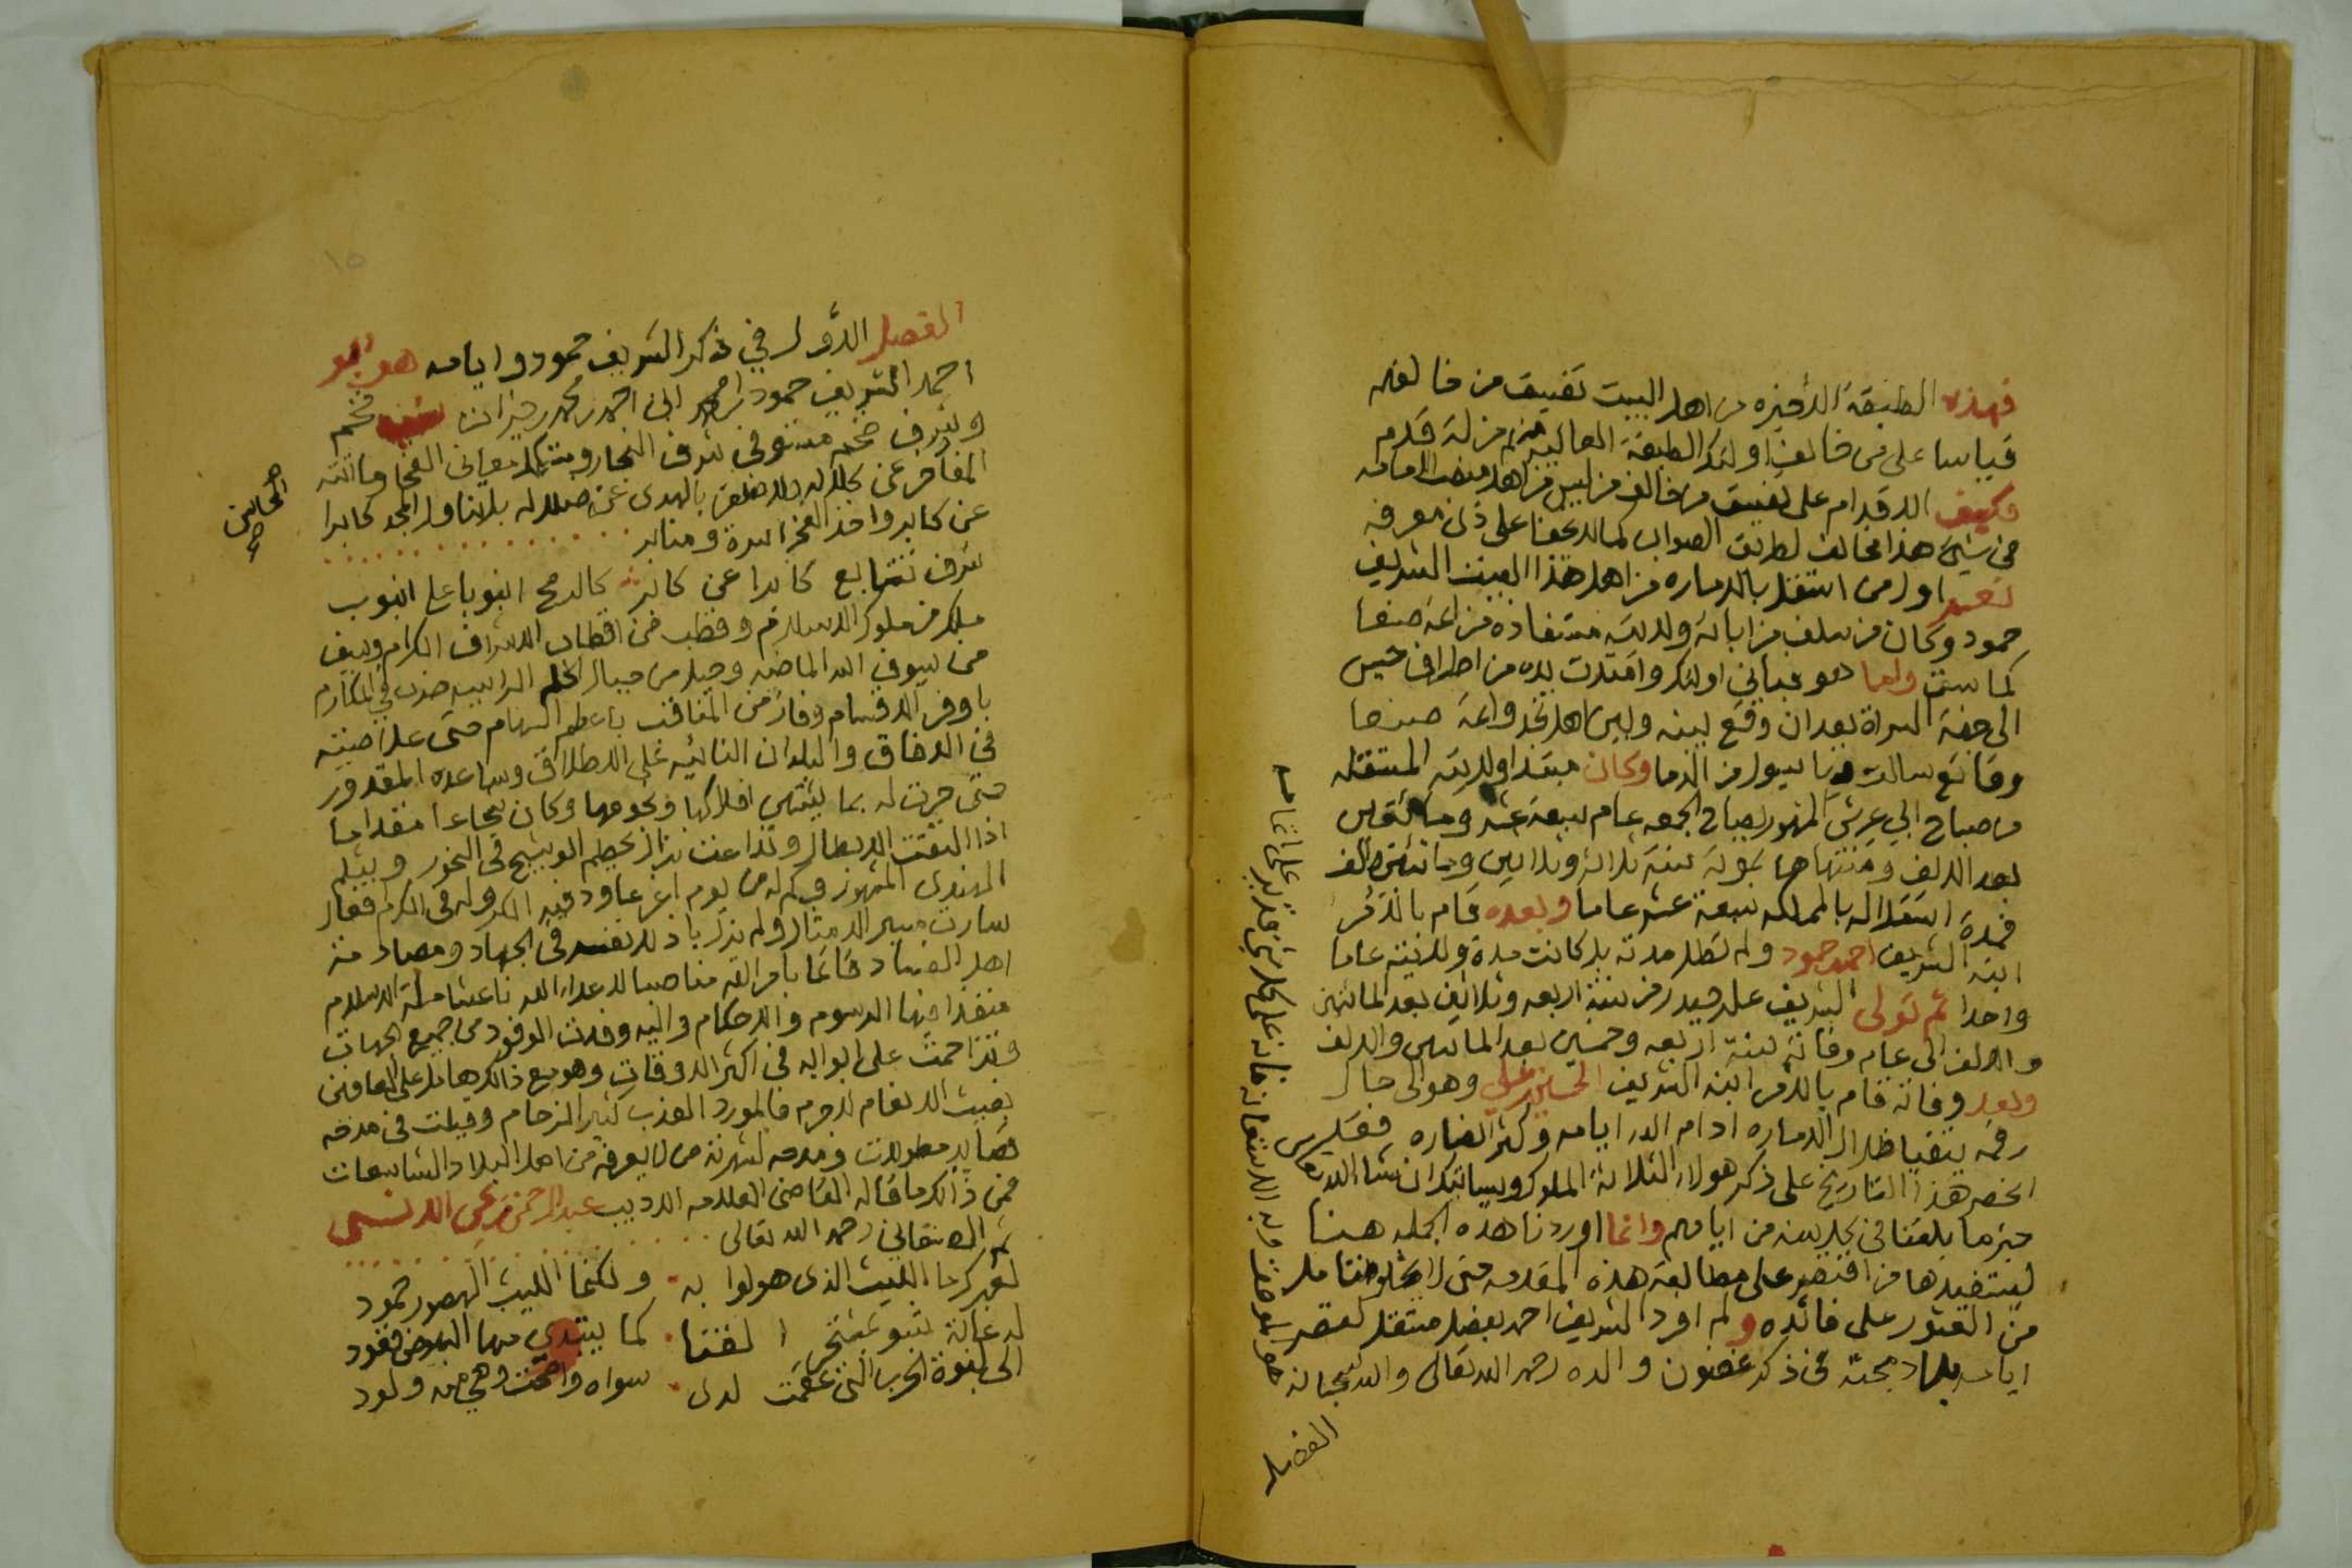 فهذه الطبقة الأخيره من اهل البيت تفيق من خالفه
قياسا على من خالف اولئك الطبقة العاليه منزلة قدم
وكيف الاقدام على من خالف من ليس من اهل منصب الامامه
في شيء هذا مخالف لطريق الصواب كما لا يخفا على ذي معرفه
نعم اول من استقل بالاماره من اهل هذا البيت الشريف
حمود وكان من سلف من ابائه ولايته مستفاده من ائمة صنعا
كما سبق واما هو فباني اولئك وامتدت يده من اطراف حيس
الى جهة السراة بعد ان وقع بينه وبين اهل نجد وائمة صنعا
وقائع سالت بها سيول من الدما وكان مبتدا ولايته المستقله
من صباح ابي عريش المشهور بصباح الجمعه عام سبعة عشر ومائتين
بعد الالف ومنتهاها بموته سنة ثلاثه وثلاثين ومائتين والف
فمدة استقلاله بالمملكه سبعة عشر عاما وبعده قام بالأمر
ابنه الشريف احمد حمود ولم تطل مدته بل كانت مدة ولايته عاما
واحدا ثم تولى الشريف علي حيدر من سنة اربعه وثلاثين بعد المائتين
والالف الى عام وفاته سنة اربعه وخمسين بعد المائتين والالف
وبعد وفاته قام بالأمر ابنه الشريف الحسين بن علي وهو الى حال
رقمه يتفيا ظلال الاماره ادام الله ايامه وكثر انصاره
انحصر هذا التاريخ على ذكر هولاء الثلاثة الملوك وسياتيك ان شاء الله تعالى
خبر ما بلغنا من ايامهم وانما اوردنا هذه الجمله هنا
ليستفيدها من اقتصر على مطالعة هذه المقدمه حتى لا يخلو متامل
من العثور على فائده ولم افرد الشريف احمد بفصل مستقل لقصر
ايامه بل ادمجته في ذكر غضون والده رحمه الله تعالى والله سبحانه
هو الموفق وبه الاستعانه فانه على كل شي قدير
الفصل
١٥
الفصل الأول في ذكر الشريف حمود وايامه هو ابو
احمد الشريف حمود بن محمد ابن احمد بن محمد بن خيرات
وشرف ضخم مستوفي شرف النجار ومتكمل معاني الفخار
المفاخر عن كلاله ولا ظفر بالهدى عن ضلاله بل تناول المجد كابرا
المحاسن صح
عن كابر واخذ الفخر اسرة ومنابر
شرف تتابع كابرا عن كابر كالرمح انبوبا على انبوب
ملك من ملوك الاسلام وقطب من اقطاب الاشراف الكرام وسيف
من سيوف الله الماضيه وجبل من جبال الحلم الراسيه ضرب في المكارم
باوفر الاقسام وفاز من المناقب باعظم السهام حتى علا صيته
في الافاق والبلدان النائيه على الاطلاق وساعده المقدور
حتى جرت له بما يشتهي افلاكها ونجومها وكان شجاعا مقداما
اذا التقت الابطال وتداعت نزال يحطم الوشيج في النحور ويثلم
المهندي المشهور وكم له من يوم اغر عاود فيه الكر وله في الكرم فعال
سارت مسير الامثال ولم يزل باذلا نفسه في الجهاد ومصادمة
اهل الفساد قائما بامر الله مناصبا لاعداء الله ناعشا ملة الاسلام
منفذا فيها الرسوم والاحكام واليه وفدت الوفود من جميع الجهات
وتزاحمت على ابوابه في اكثر الاوقات وهو مع ذالك هامل على العافين
بغيث الانعام لاجرم فالمورد العذب كثير الزحام وقيلت في مدحه
قصايد مطولات ومدحه لشهرته من لا يعرفه من اهل البلاد الشاسعات
فمن ذالك ما قاله القاضي العلامه الاديب عبد الرحمن بن يحيى الانسي
ثم الصنعاني رحمه الله تعالى
لعمرك ما الليث الذي هولوا به ولكنما الليث الهصور حمود
له غابة كما يبتدي منها
الى لبوة الحرب التي عقمت لدى سواه واضحت وهي منه ولود